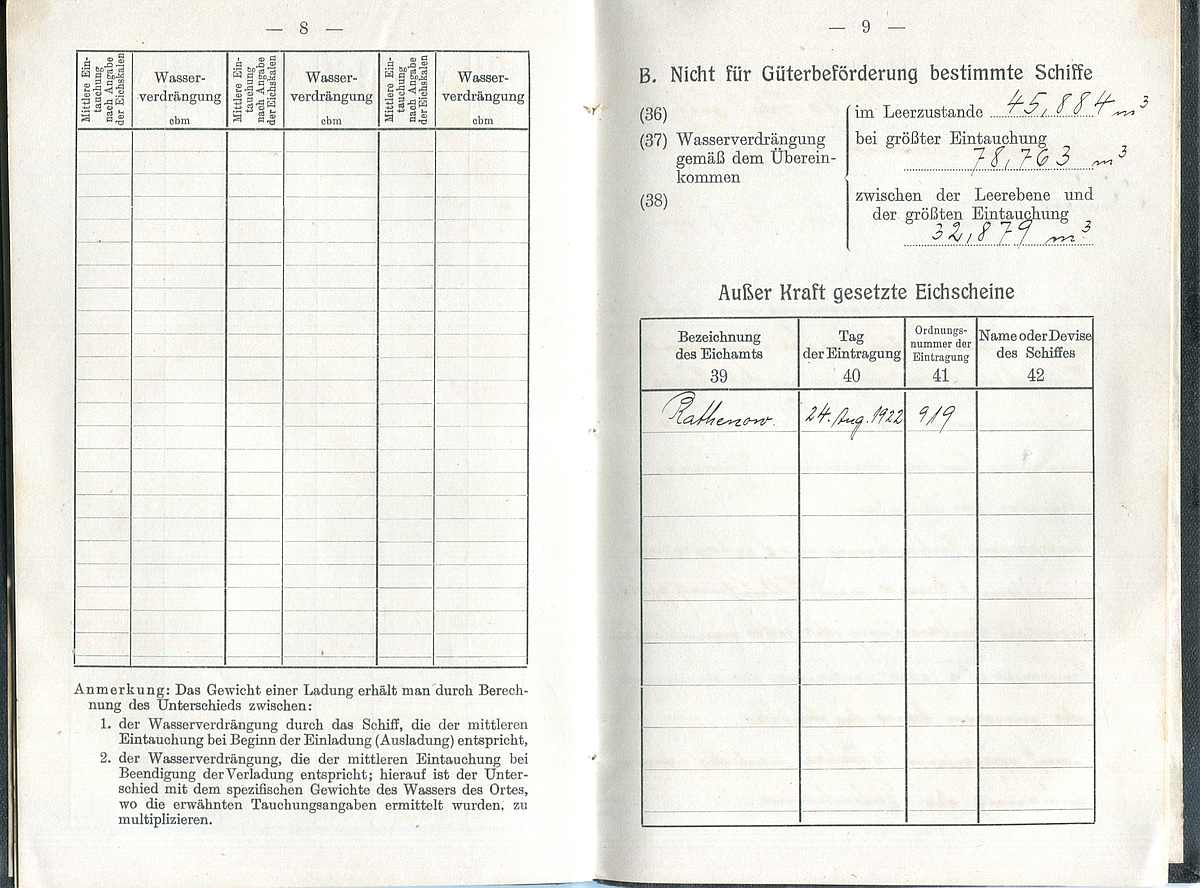 — 8 —
Mittlere Ein-
tauchung
nach Angabe
der Eichskalen
Wasser-
verdrängung
cbm
Mittlere Ein-
tauchung
nach Angabe
der Eichskalen
Wasser-
verdrängung
cbm
Mittlere Ein-
tauchung
nach Angabe
der Eichskalen
Wasser-
verdrängung
cbm
Anmerkung: Das Gewicht einer Ladung erhält man durch Berech-
nung des Unterschieds zwischen:
1. der Wasserverdrängung durch das Schiff, die der mittleren
Eintauchung bei Beginn der Einladung (Ausladung) entspricht,
2. der Wasserverdrängung, die der mittleren Eintauchung bei
Beendigung der Verladung entspricht; hierauf ist der Unter-
schied mit dem spezifischen Gewichte des Wassers des Ortes,
wo die erwähnten Tauchungsangaben ermittelt wurden, zu
multiplizieren.
— 9 —
B. Nicht für Güterbeförderung bestimmte Schiffe
(36)
(37) Wasserverdrängung
gemäß dem Überein-
kommen
(38)
im Leerzustande 45,884 m³
bei größter Eintauchung
78,763 m³
zwischen der Leerebene und
der größten Eintauchung
32,879 m³
Außer Kraft gesetzte Eichscheine
Bezeichnung
des Eichamts
39
Tag
der Eintragung
40
Ordnungs-
nummer der
Eintragung
41
Name oder Devise
des Schiffes
42
Rathenow. 24. Aug. 1922 919